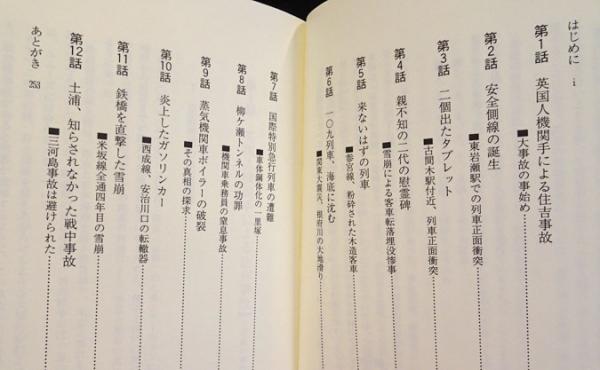 はじめに i
第1話 英国人機関手による住吉事故
■大事故の事始め
第2話 安全側線の誕生
■東岩瀬駅での列車正面衝突
第3話 二個出たタブレット
■古間木駅付近、列車正面衝突
第4話 親不知の二代の慰霊碑
■雪崩による客車転落埋没惨事
第5話 来ないはずの列車
■参宮線、粉砕された木造客車
第6話 一〇九列車、海底に沈む
■関東大震災、根府川の大地滑り
第7話 国際特別急行列車の遭難
■車体鋼体化の一里塚
第8話 柳ケ瀬トンネルの功罪
■機関車乗務員の窒息事故
第9話 蒸気機関車ボイラーの破裂
■その真相の探求
第10話 炎上したガソリンカー
■西成線、安治川口の転轍器
第11話 鉄橋を直撃した雪崩
■米坂線全通四年目の雪崩
第12話 土浦、知らされなかった戦中事故
■三河島事故は避けられた
あとがき 253